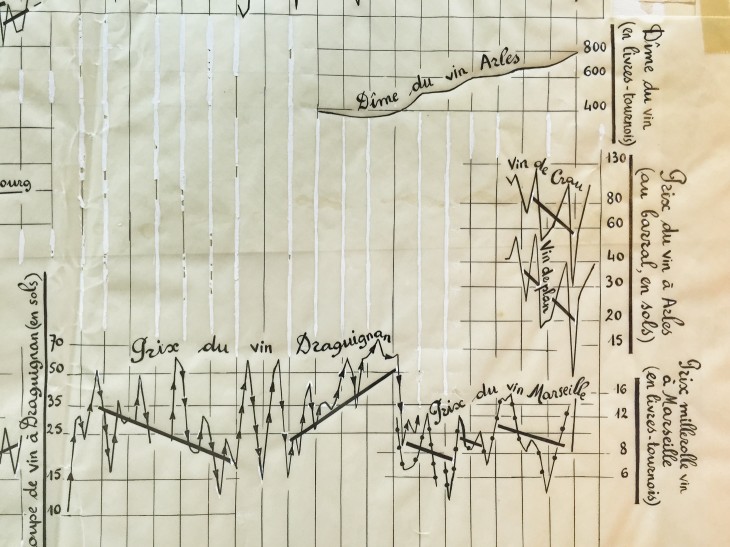 Dîme du vin Arles
800
600
400
Dîme du vin
(en livres-tournois)
Vin de Crau
Vin de plan
130
80
60
40
30
20
15
Prix du vin à Arles
(au barral, en sols)
Prix du vin Draguignan
70
50
35
25
15
10
coupe de vin à Draguignan (en sols)
Prix du vin Marseille
16
12
8
6
Prix millerolle vin
à Marseille
(en livres-tournois)
ourg